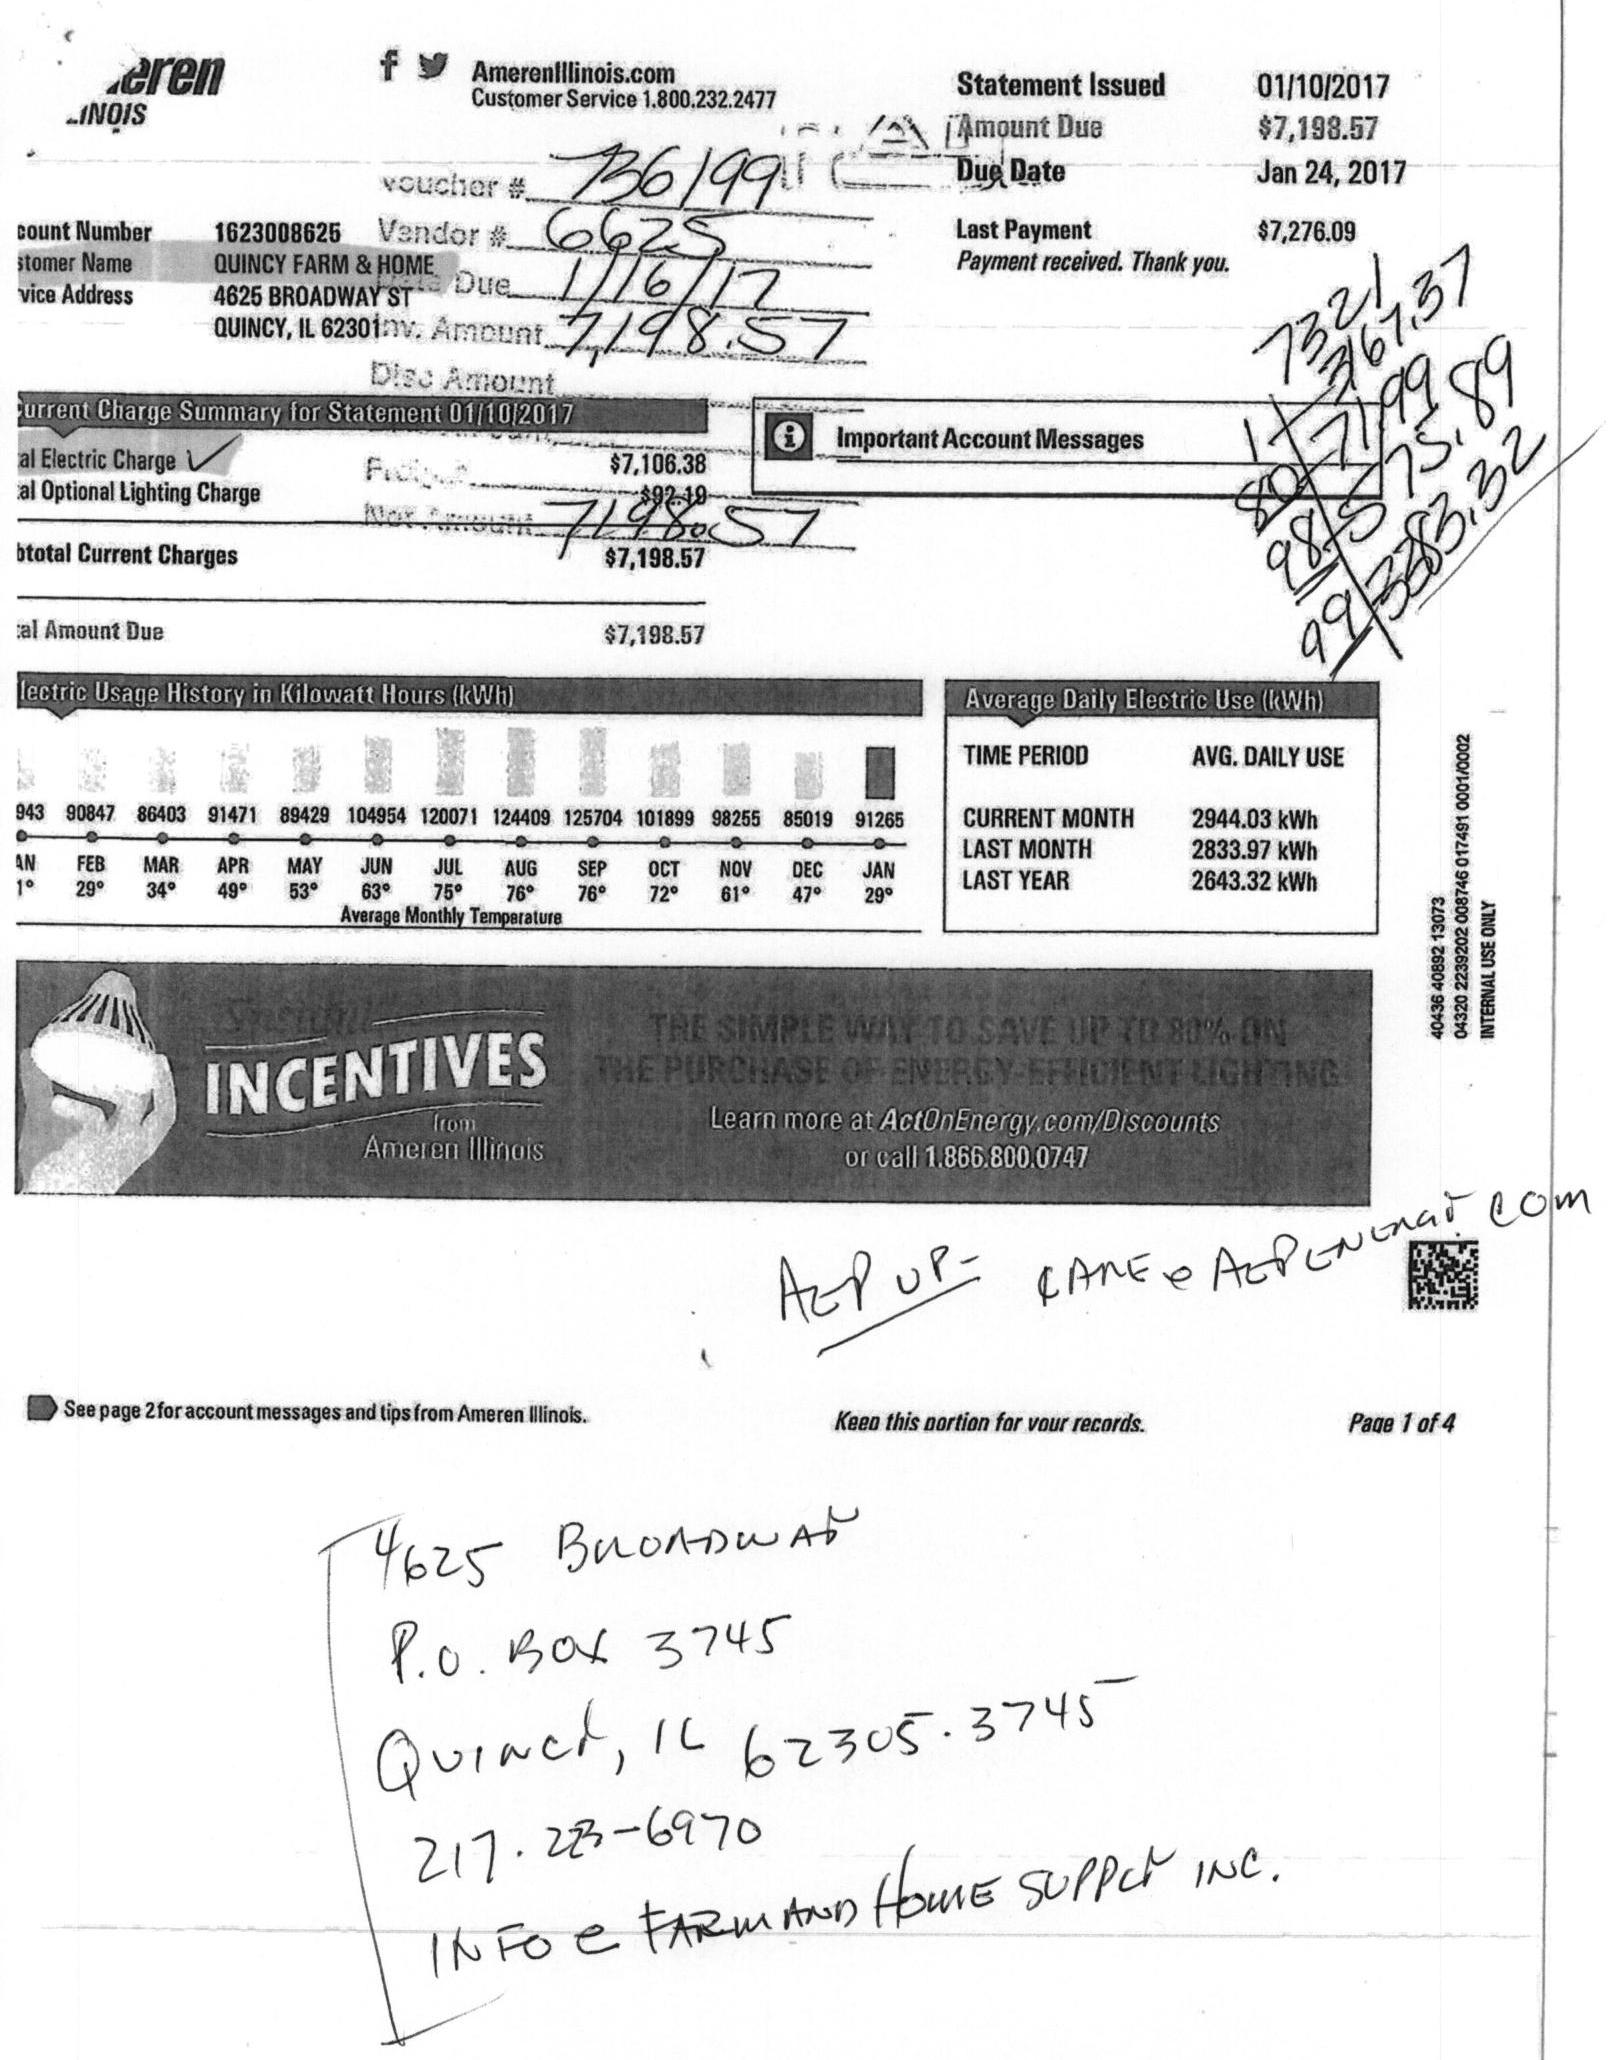 eren
INOIS
AmerenIllinois.com
Customer Service 1.800.232.2477
Statement Issued 01/10/2017
Amount Due $7,198.57
Due Date Jan 24, 2017
Last Payment $7,276.09
Payment received. Thank you.
Voucher # 736199
Vendor # 6625
Due 1/16/17
Inv. Amount 7,198.57
Disc Amount
Net Amount 7198.57
count Number 1623008625
stomer Name QUINCY FARM & HOME
vice Address 4625 BROADWAY ST
QUINCY, IL 62301
7321
1 367.37
80 71.99
98.5 75.89
99 3383.32
Current Charge Summary for Statement 01/10/2017
al Electric Charge ✓ $7,106.38
al Optional Lighting Charge $92.19
btotal Current Charges $7,198.57
al Amount Due $7,198.57
Important Account Messages
lectric Usage History in Kilowatt Hours (kWh)
943 90847 86403 91471 89429 104954 120071 124409 125704 101899 98255 85019 91265
AN FEB MAR APR MAY JUN JUL AUG SEP OCT NOV DEC JAN
1° 29° 34° 49° 53° 63° 75° 76° 76° 72° 61° 47° 29°
Average Monthly Temperature
Average Daily Electric Use (kWh)
TIME PERIOD AVG. DAILY USE
CURRENT MONTH 2944.03 kWh
LAST MONTH 2833.97 kWh
LAST YEAR 2643.32 kWh
40436 40892 13073
04320 2239202 008746 017491 0001/0002
INTERNAL USE ONLY
INCENTIVES
from
Ameren Illinois
THE SIMPLE WAY TO SAVE UP TO 80% ON
THE PURCHASE OF ENERGY-EFFICIENT LIGHTING
Learn more at ActOnEnergy.com/Discounts
or call 1.866.800.0747
AEP UP- CARE@AEPENERGY.COM
See page 2 for account messages and tips from Ameren Illinois.
Keep this portion for your records.
Page 1 of 4
4625 BROADWAY
P.O. BOX 3745
QUINCY, IL 62305.3745
217.223-6970
INFO@FARMANDHOMESUPPLY INC.